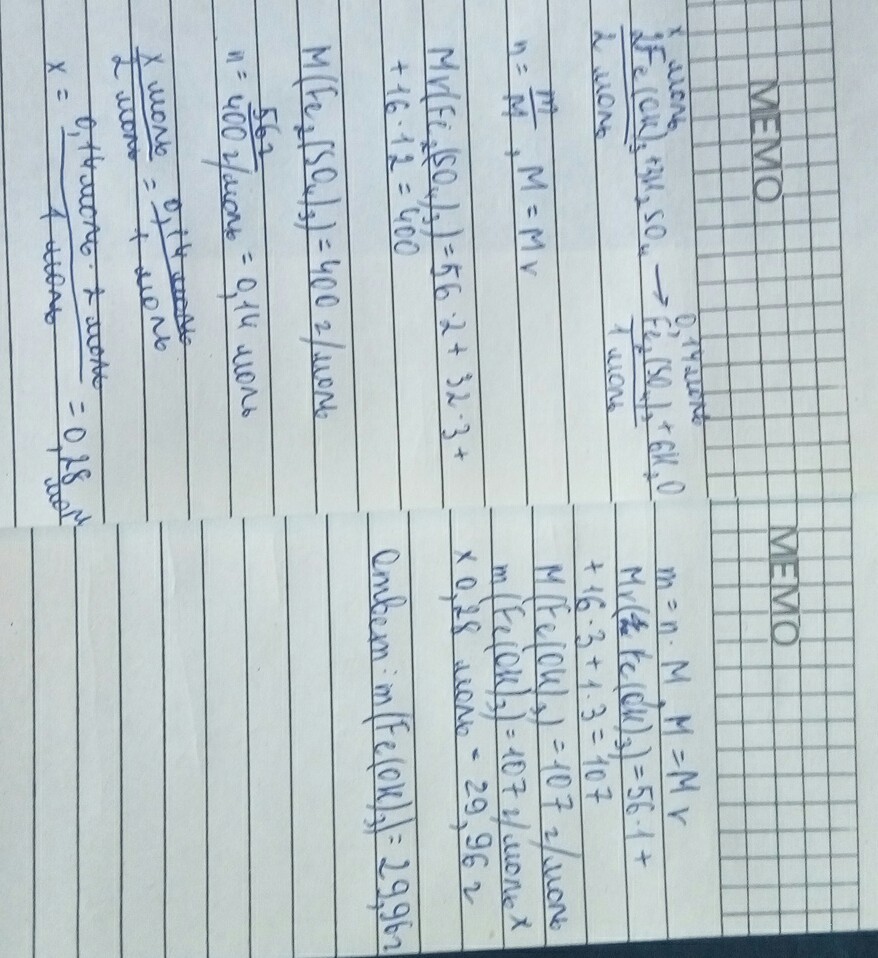 MEMO
x моль 0,14 моль
2Fe(OH)₃ + 3H₂SO₄ → Fe₂(SO₄)₃ + 6H₂O
2 моль 1 моль
n = m/M , M = Mr
Mr(Fe₂(SO₄)₃) = 56·2 + 32·3 +
+ 16·12 = 400
M(Fe₂(SO₄)₃) = 400 г/моль
n = 56 г / 400 г/моль = 0,14 моль
x моль / 2 моль = 0,14 моль / 1 моль
x = 0,14 моль · 2 моль / 1 моль = 0,28 моль
MEMO
m = n · M, M = Mr
Mr(Fe(OH)₃) = 56·1 +
+ 16·3 + 1·3 = 107
M(Fe(OH)₃) = 107 г/моль
m(Fe(OH)₃) = 107 г/моль x
x 0,28 моль = 29,96 г
Ответ: m(Fe(OH)₃) = 29,96 г